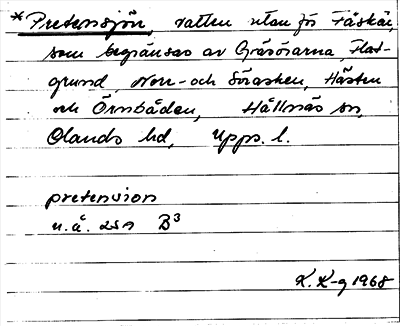 *Pretensjön, vatten utan för Fäskär,
som begränsas av Gräsörarna, Flat-
grund, Norr- och Sörasken, Hästen
och Örnbåden, Hållnäs sn,
Olands hd, Upps. l.
pretension
u.å. 25A B3
K. K-g 1968